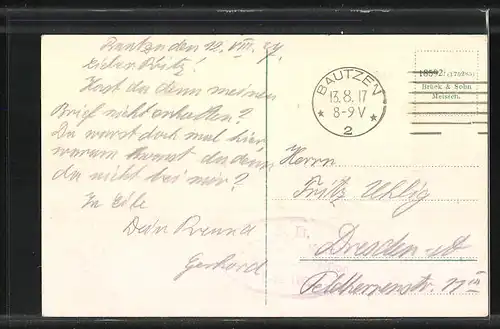 Bautzen den 12. VIII. 17.
Lieber Fritz!
Hast du denn meinen
Brief nicht erhalten?
Du warst doch mal hier,
warum kamst du denn
du nicht bei mir?
In Eile
Dein Freund
Gerhard
BAUTZEN
13.8.17
8-9V
* 2 *
18592
Brück & Sohn
Meissen.
Herrn
Fritz Uhlig
Dresden-A